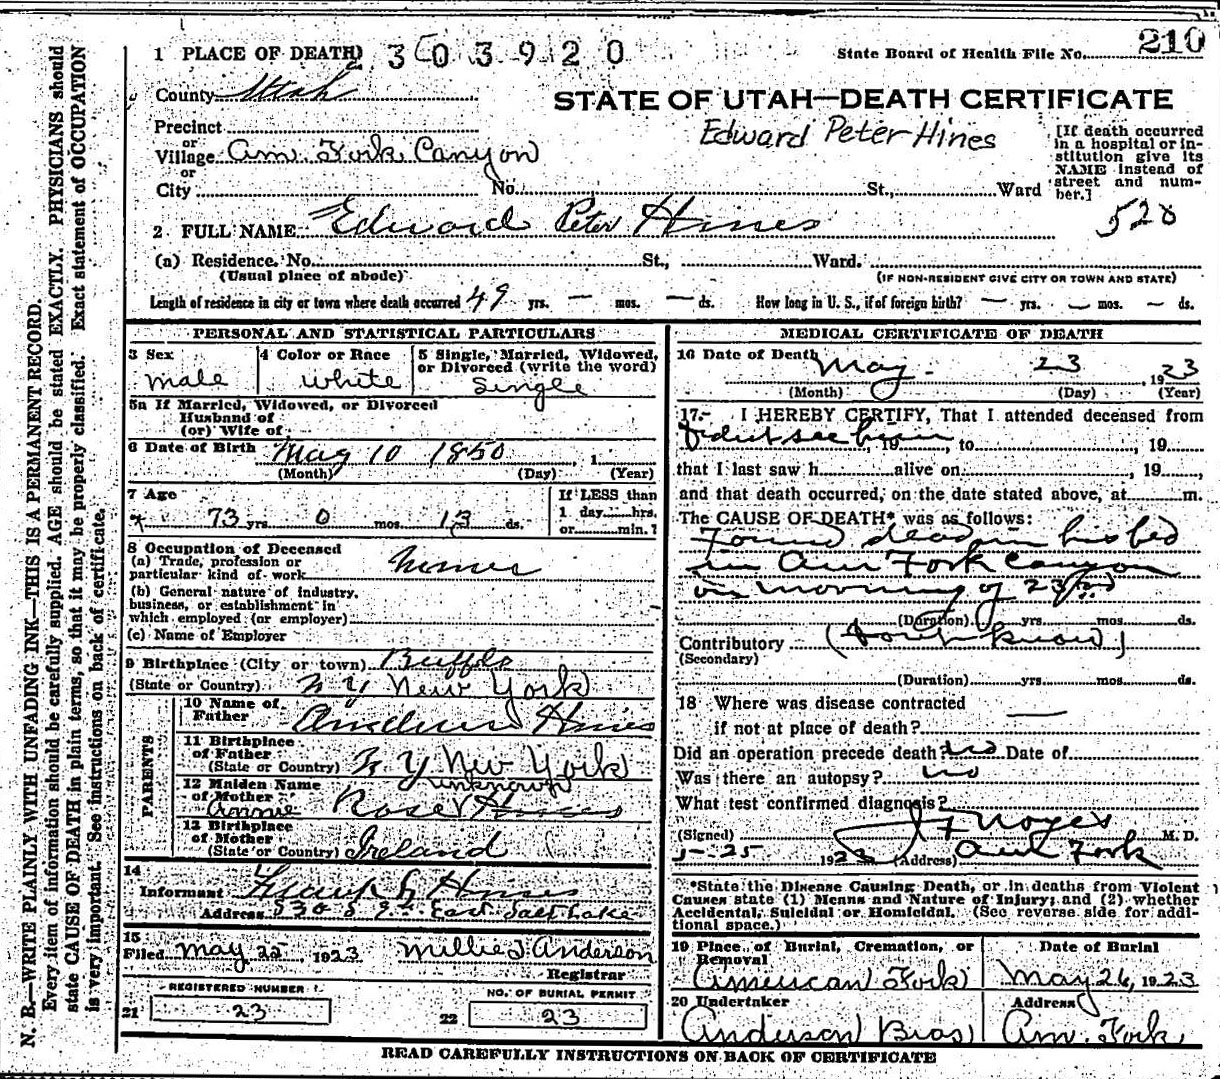 1 PLACE OF DEATH
2 3 0 3 9 2 0
State Board of Health File No. 210
County Utah
STATE OF UTAH—DEATH CERTIFICATE
Edward Peter Hines
Precinct
or
Village Am. Fork Canyon
or
City No. St., Ward
[If death occurred
in a hospital or in-
stitution give its
NAME instead of
street and num-
ber.]
520
2 FULL NAME Edward Peter Hines
(a) Residence. No. St., Ward.
(Usual place of abode)
(IF NON-RESIDENT GIVE CITY OR TOWN AND STATE)
Length of residence in city or town where death occurred 49 yrs. — mos. — ds. How long in U. S., if of foreign birth? — yrs. — mos. — ds.
PERSONAL AND STATISTICAL PARTICULARS
3 Sex
male
4 Color or Race
white
5 Single, Married, Widowed,
or Divorced (write the word)
Single
5a If Married, Widowed, or Divorced
Husband of
(or) Wife of
6 Date of Birth May 10 1850, 1
(Month) (Day) (Year)
7 Age
73 yrs. 0 mos. 13 ds.
If LESS than
1 day hrs.
or min.?
8 Occupation of Deceased
(a) Trade, profession or
particular kind of work miner
(b) General nature of industry,
business, or establishment in
which employed (or employer)
(c) Name of Employer
9 Birthplace (City or town) Buffalo
(State or Country) N Y New York
PARENTS
10 Name of
Father Andrew Hines
11 Birthplace
of Father
(State or Country) N. Y New York
12 Maiden Name
of Mother unknown
Annie Rose Hines
13 Birthplace
of Mother
(State or Country) Ireland
14
Informant Hines
Address 530 S 9th East Salt Lake
15
Filed May 25 1923 Millie J. Anderson
Registrar
REGISTERED NUMBER
21 23
NO. OF BURIAL PERMIT
22 23
MEDICAL CERTIFICATE OF DEATH
16 Date of Death
May 23, 1923
(Month) (Day) (Year)
17.- I HEREBY CERTIFY, That I attended deceased from
I didnt see him, 19 , to , 19
that I last saw h alive on , 19 ,
and that death occurred, on the date stated above, at m.
The CAUSE OF DEATH* was as follows:
Found dead in his bed
in Am Fork Canyon
on morning of 23rd
(Duration) yrs. mos. ds.
Contributory (dont know)
(Secondary)
(Duration) yrs. mos. ds.
18 Where was disease contracted
if not at place of death?
Did an operation precede death? no Date of
Was there an autopsy? no
What test confirmed diagnosis?
(Signed) J F Noyes M. D.
5-25 1923 (Address) Am Fork
*State the Disease Causing Death, or in deaths from Violent
Causes state (1) Means and Nature of Injury; and (2) whether
Accidental, Suicidal or Homicidal. (See reverse side for addi-
tional space.)
19 Place of Burial, Cremation, or
Removal
American Fork
Date of Burial
May 26, 1923
20 Undertaker
Anderson Bros
Address
Am. Fork
READ CAREFULLY INSTRUCTIONS ON BACK OF CERTIFICATE
N. B.—WRITE PLAINLY WITH UNFADING INK—THIS IS A PERMANENT RECORD.
Every item of information should be carefully supplied. AGE should be stated EXACTLY. PHYSICIANS should
state CAUSE OF DEATH in plain terms, so that it may be properly classified. Exact statement of OCCUPATION
is very important. See instructions on back of certificate.